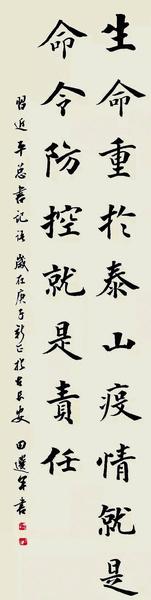 生命重於泰山疫情就是
命令防控就是責任
習近平总書記语 歲在庚子新正於古长安 田選军書